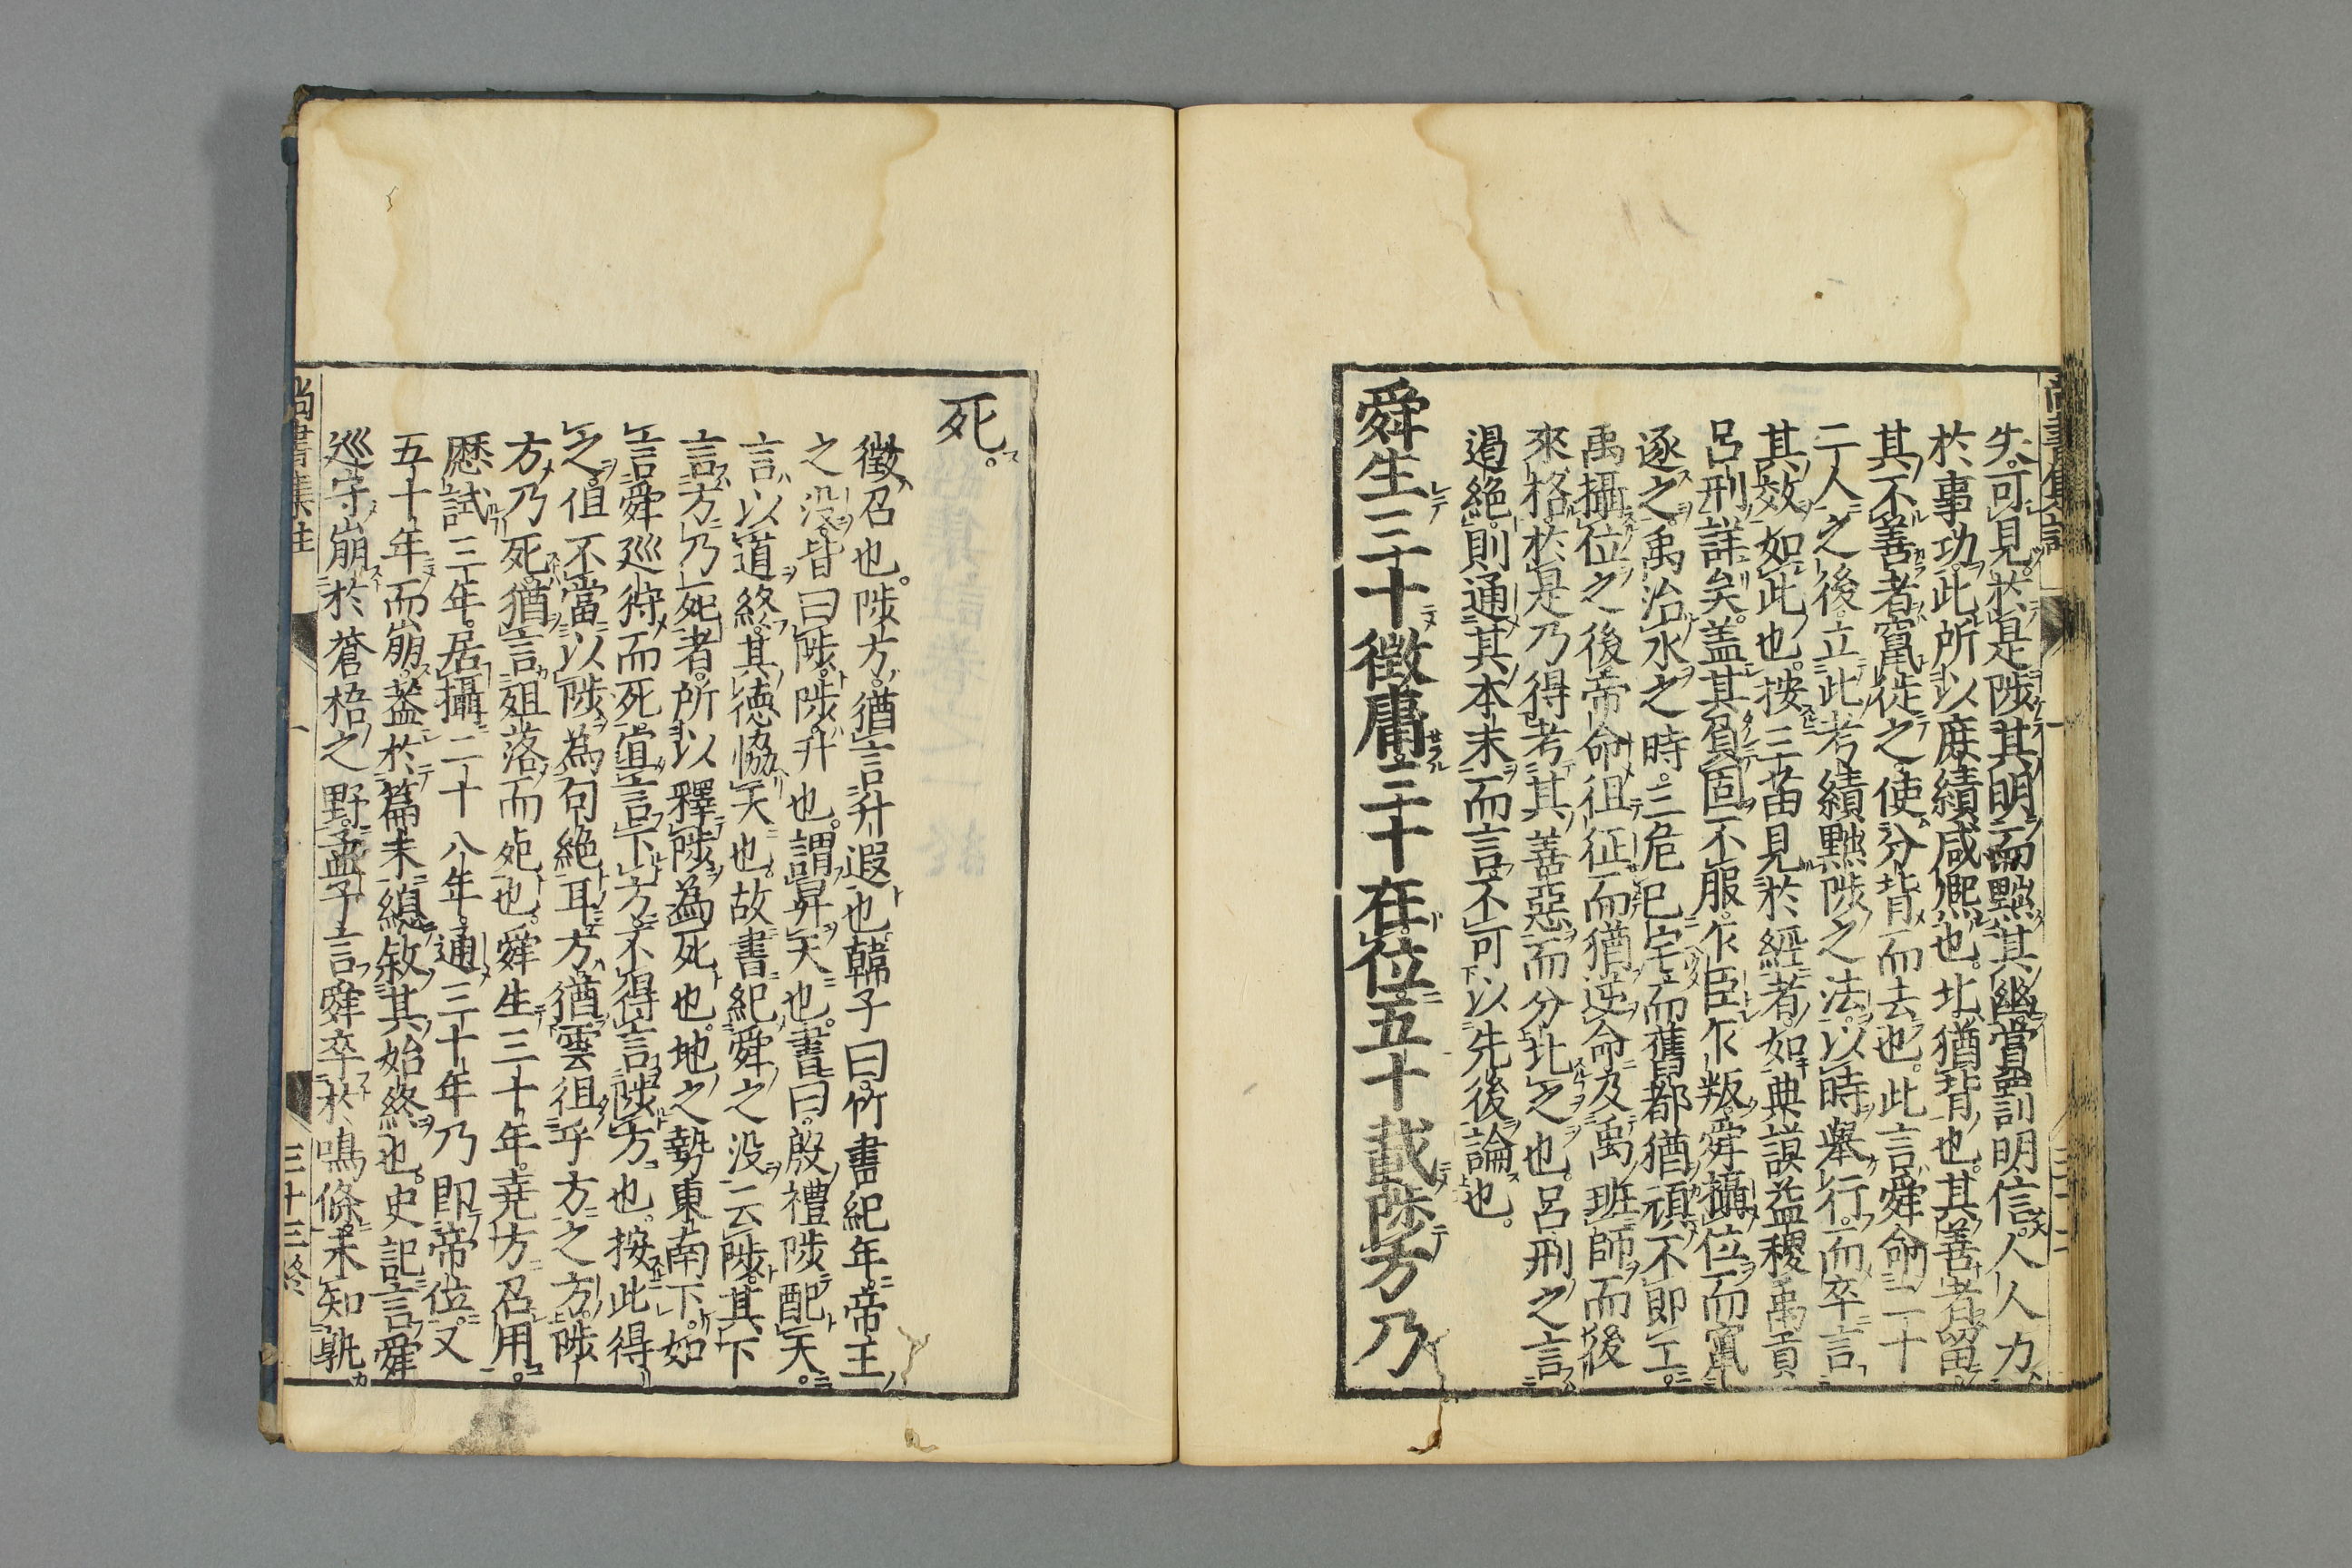 失可見於是陟其明而黜其幽賞罰明信人人力
於事功此所以庶績咸熙也北猶背也其善者留
其不善者竄徙之使分背而去也此言舜命二十
二人之後立此考績黜陟之法以時舉行而卒言
其效如此也按三苗見於經者如典謨益稷禹貢
呂刑詳矣蓋其負固不服乍臣乍叛舜攝位而竄
逐之禹治水之時三危已宅而舊都猶頑不即工
禹攝位之後帝命徂征而猶逆命及禹班師而後
來格於是乃得考其善惡而分北之也呂刑之言
遏絶則通其本末而言不可以先後論也
舜生三十徵庸三十在位五十載陟方乃
死
徵召也陟方猶言升遐也韓子曰竹書紀年帝王
之没皆曰陟陟升也謂昇天也書曰殷禮陟配天
言以道終其德協天也故書紀舜之没云陟其下
言方乃死者所以釋陟為死也地之勢東南下如
言舜巡狩而死宜言下方不得言陟方也按此得
之但不當以陟為句絶耳方猶雲徂乎方之方陟
方乃死猶言殂落而死也舜生三十年堯方召用
歷試三年居攝二十八年通三十年乃即帝位又
五十年而崩蓋於篇末總敘其始終也史記言舜
巡守崩於蒼梧之野孟子言舜卒於鳴條未知孰
尚書集註
三十三終